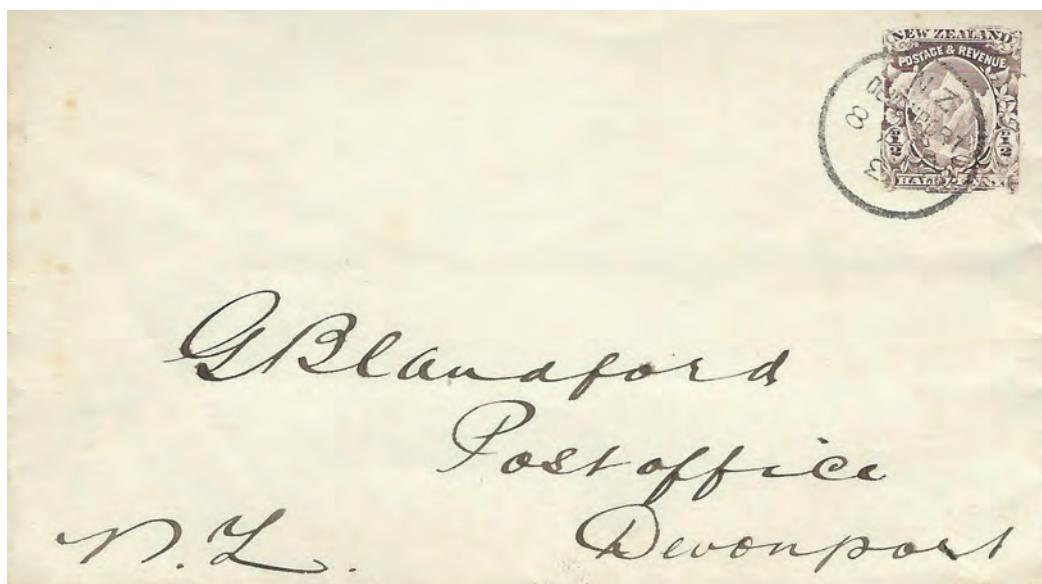 NEW ZEALAND
POSTAGE & REVENUE
½ ½
HALF PENNY
N.Z.
8
3
G Blandford
Post office
Devonport
N.Z.